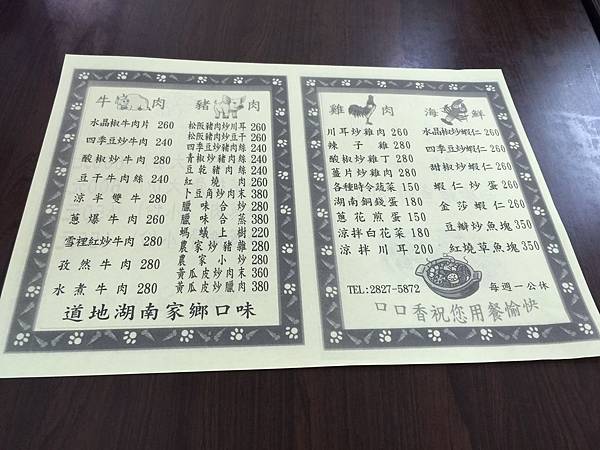 牛肉
水晶椒牛肉片 260
四季豆炒牛肉 240
酸椒炒牛肉 280
豆干牛肉絲 240
涼半雙牛 280
蔥爆牛肉 260
雪裡紅炒牛肉 280
孜然牛肉 280
水煮牛肉 280
豬肉
松阪豬肉炒川耳 260
松阪豬肉炒豆干 260
四季豆炒豬肉絲 240
青椒炒豬肉絲 240
豆乾豬肉絲 240
紅燒肉 260
卜豆角炒肉末 380
臘味合炒 380
臘味合蒸 380
螞蟻上樹 220
農家炒豬雜 280
農家小炒 280
黃瓜皮炒肉末 360
黃瓜皮炒臘肉 380
道地湖南家鄉口味
雞肉
川耳炒雞肉 260
辣子雞 280
酸椒炒雞丁 280
薑片炒雞肉 280
各種時令蔬菜 150
湖南銅錢蛋 180
蔥花煎蛋 150
涼拌白花菜 180
涼拌川耳 200
海鮮
水晶椒炒蝦仁 260
四季豆炒蝦仁 260
甜椒炒蝦仁 260
蝦仁炒蛋 260
金莎蝦仁 260
豆瓣炒魚塊 350
紅燒草魚塊 350
TEL:2827-5872
每週一公休
口口香祝您用餐愉快